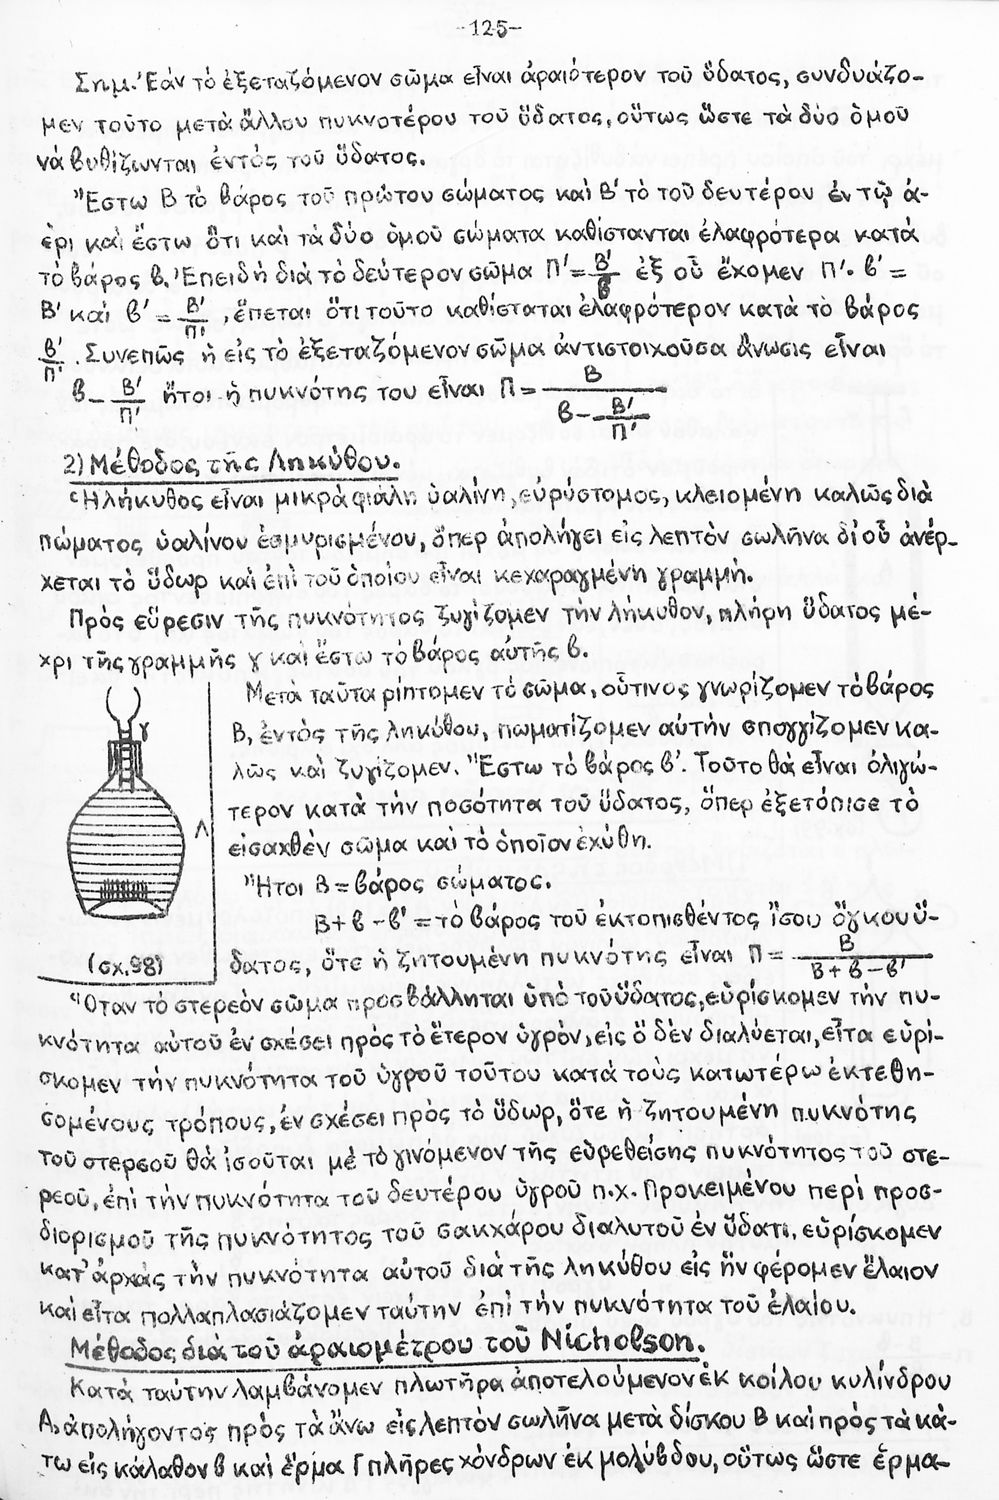 -125-
Σημ. Ἐάν τό ἐξεταζόμενον σῶμα εἶναι ἀραιότερον τοῦ ὕδατος, συνδυάζο-
μεν τοῦτο μετά ἄλλου πυκνοτέρου τοῦ ὕδατος, οὕτως ὥστε τὰ δύο ὁμοῦ
νά βυθίζωνται ἐντός τοῦ ὕδατος.
Ἔστω Β τό βάρος τοῦ πρώτου σώματος καί Β' τό τοῦ δευτέρου ἐν τῷ ἀ-
έρι καί ἔστω ὅτι καί τά δύο ὁμοῦ σώματα καθίστανται ἐλαφρότερα κατά
τό βάρος β. Ἐπειδή διά τό δεύτερον σῶμα Π'= Β'/β' ἐξ οὗ ἔχομεν Π'. β' =
Β' καί β' = Β'/Π' , ἕπεται ὅτι τοῦτο καθίσταται ἐλαφρότερον κατά τό βάρος
Β'/Π' . Συνεπῶς ἡ εἰς τό ἐξεταζόμενον σῶμα ἀντιστοιχοῦσα ἄνωσις εἶναι
β - Β'/Π' ἤτοι ἡ πυκνότης του εἶναι Π = Β/(β - Β'/Π')
2) Μέθοδος τῆς Ληκύθου.
Ἡ λήκυθος εἶναι μικρά φιάλη ὑαλίνη, εὐρύστομος, κλειομένη καλῶς διά
πώματος ὑαλίνου ἐσμυρισμένου, ὅπερ ἀπολήγει εἰς λεπτόν σωλῆνα δι' οὗ ἀνέρ-
χεται τό ὕδωρ καί ἐπί τοῦ ὁποίου εἶναι κεχαραγμένη γραμμή.
Πρός εὕρεσιν τῆς πυκνότητος ζυγίζομεν τήν λήκυθον, πλήρη ὕδατος μέ-
χρι τῆς γραμμῆς γ καί ἔστω τό βάρος αὐτῆς β.
Μετά ταῦτα ρίπτομεν τό σῶμα, οὗτινος γνωρίζομεν τό βάρος
Β, ἐντός τῆς ληκύθου, πωματίζομεν αὐτήν σπογγίζομεν κα-
λῶς καί ζυγίζομεν. Ἔστω τό βάρος β'. Τοῦτο θά εἶναι ὀλιγώ-
τερον κατά τήν ποσότητα τοῦ ὕδατος, ὅπερ ἐξετόπισε τό
εἰσαχθέν σῶμα καί τό ὁποῖον ἐχύθη.
Ἤτοι Β = βάρος σώματος.
Β + β - β' = τό βάρος τοῦ ἐκτοπισθέντος ἴσου ὄγκου ὕ-
δατος, ὅτε ἡ ζητουμένη πυκνότης εἶναι Π = Β/(Β + β - β')
γ
Λ
(σχ. 98)
Ὅταν τό στερεόν σῶμα προσβάλληται ὑπό τοῦ ὕδατος, εὑρίσκομεν τήν πυ-
κνότητα αὐτοῦ ἐν σχέσει πρός τό ἕτερον ὑγρόν, εἰς ὅ δέν διαλύεται, εἶτα εὑρί-
σκομεν τήν πυκνότητα τοῦ ὑγροῦ τούτου κατά τούς κατωτέρω ἐκτεθη-
σομένους τρόπους, ἐν σχέσει πρός τό ὕδωρ, ὅτε ἡ ζητουμένη πυκνότης
τοῦ στερεοῦ θά ἰσοῦται μέ τό γινόμενον τῆς εὑρεθείσης πυκνότητος τοῦ στε-
ρεοῦ, ἐπί τήν πυκνότητα τοῦ δευτέρου ὑγροῦ π.χ. Προκειμένου περί προσ-
διορισμοῦ τῆς πυκνότητος τοῦ σακχάρου διαλυτοῦ ἐν ὕδατι, εὑρίσκομεν
κατ' ἀρχάς τήν πυκνότητα αὐτοῦ διά τῆς ληκύθου εἰς ἥν φέρομεν ἔλαιον
καί εἶτα πολλαπλασιάζομεν ταύτην ἐπί τήν πυκνότητα τοῦ ἐλαίου.
Μέθοδος διά τοῦ ἀραιομέτρου τοῦ Nicholson.
Κατά ταύτην λαμβάνομεν πλωτῆρα ἀποτελούμενον ἐκ κοίλου κυλίνδρου
Α, ἀπολήγοντος πρός τά ἄνω εἰς λεπτόν σωλῆνα μετά δίσκου Β καί πρός τά κά-
τω εἰς κάλαθον β καί ἕρμα Γ πλῆρες χόνδρων ἐκ μολύβδου, οὕτως ὥστε ἑρμα-